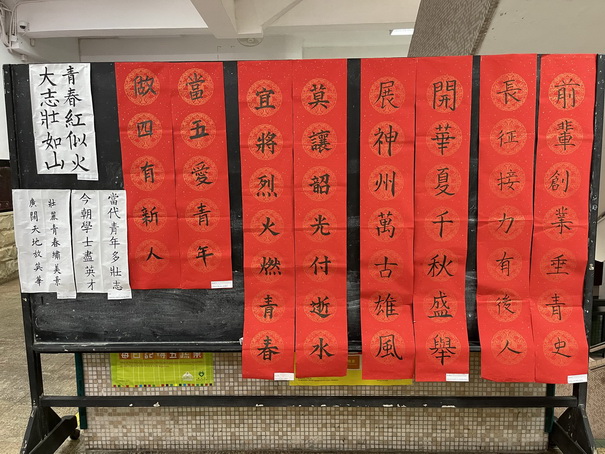 前輩創業垂青史
長征接力有後人
開華夏千秋盛舉
展神州萬古雄風
莫讓韶光付逝水
宜將烈火燃青春
當五愛青年
做四有新人
青春紅似火
大志壯如山
當代青年多壯志
今朝學士盡英才
壯麗青春繡美景
廣闊天地放英華